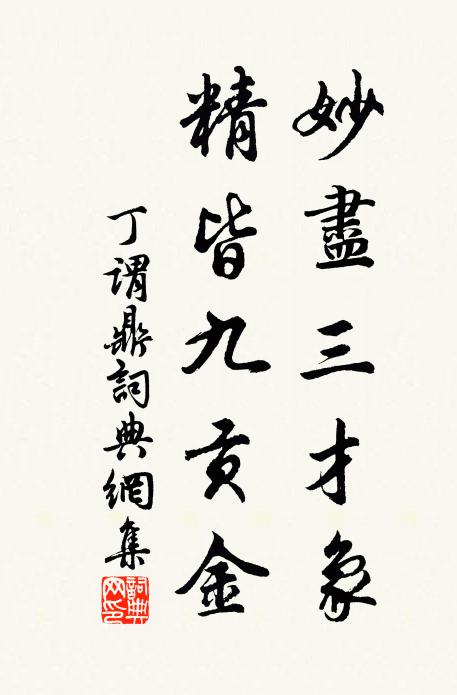 妙盡三才象
精皆九貢金
丁謂鼎詞典網集
詞典网印